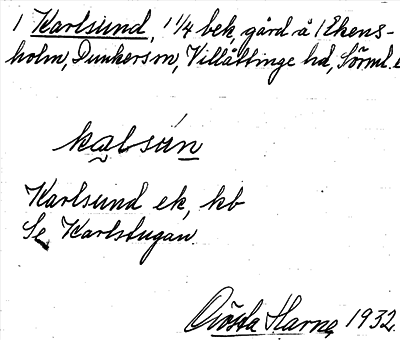 1 Karlsund, 1 1/4 bek, gård å 1 Ekens-
holm, Dunkers sn, Villåttinge hd, Sörml.
kalsún
Karlsund ek, kb
Se Karlstugan.
Gösta Harne, 1932.